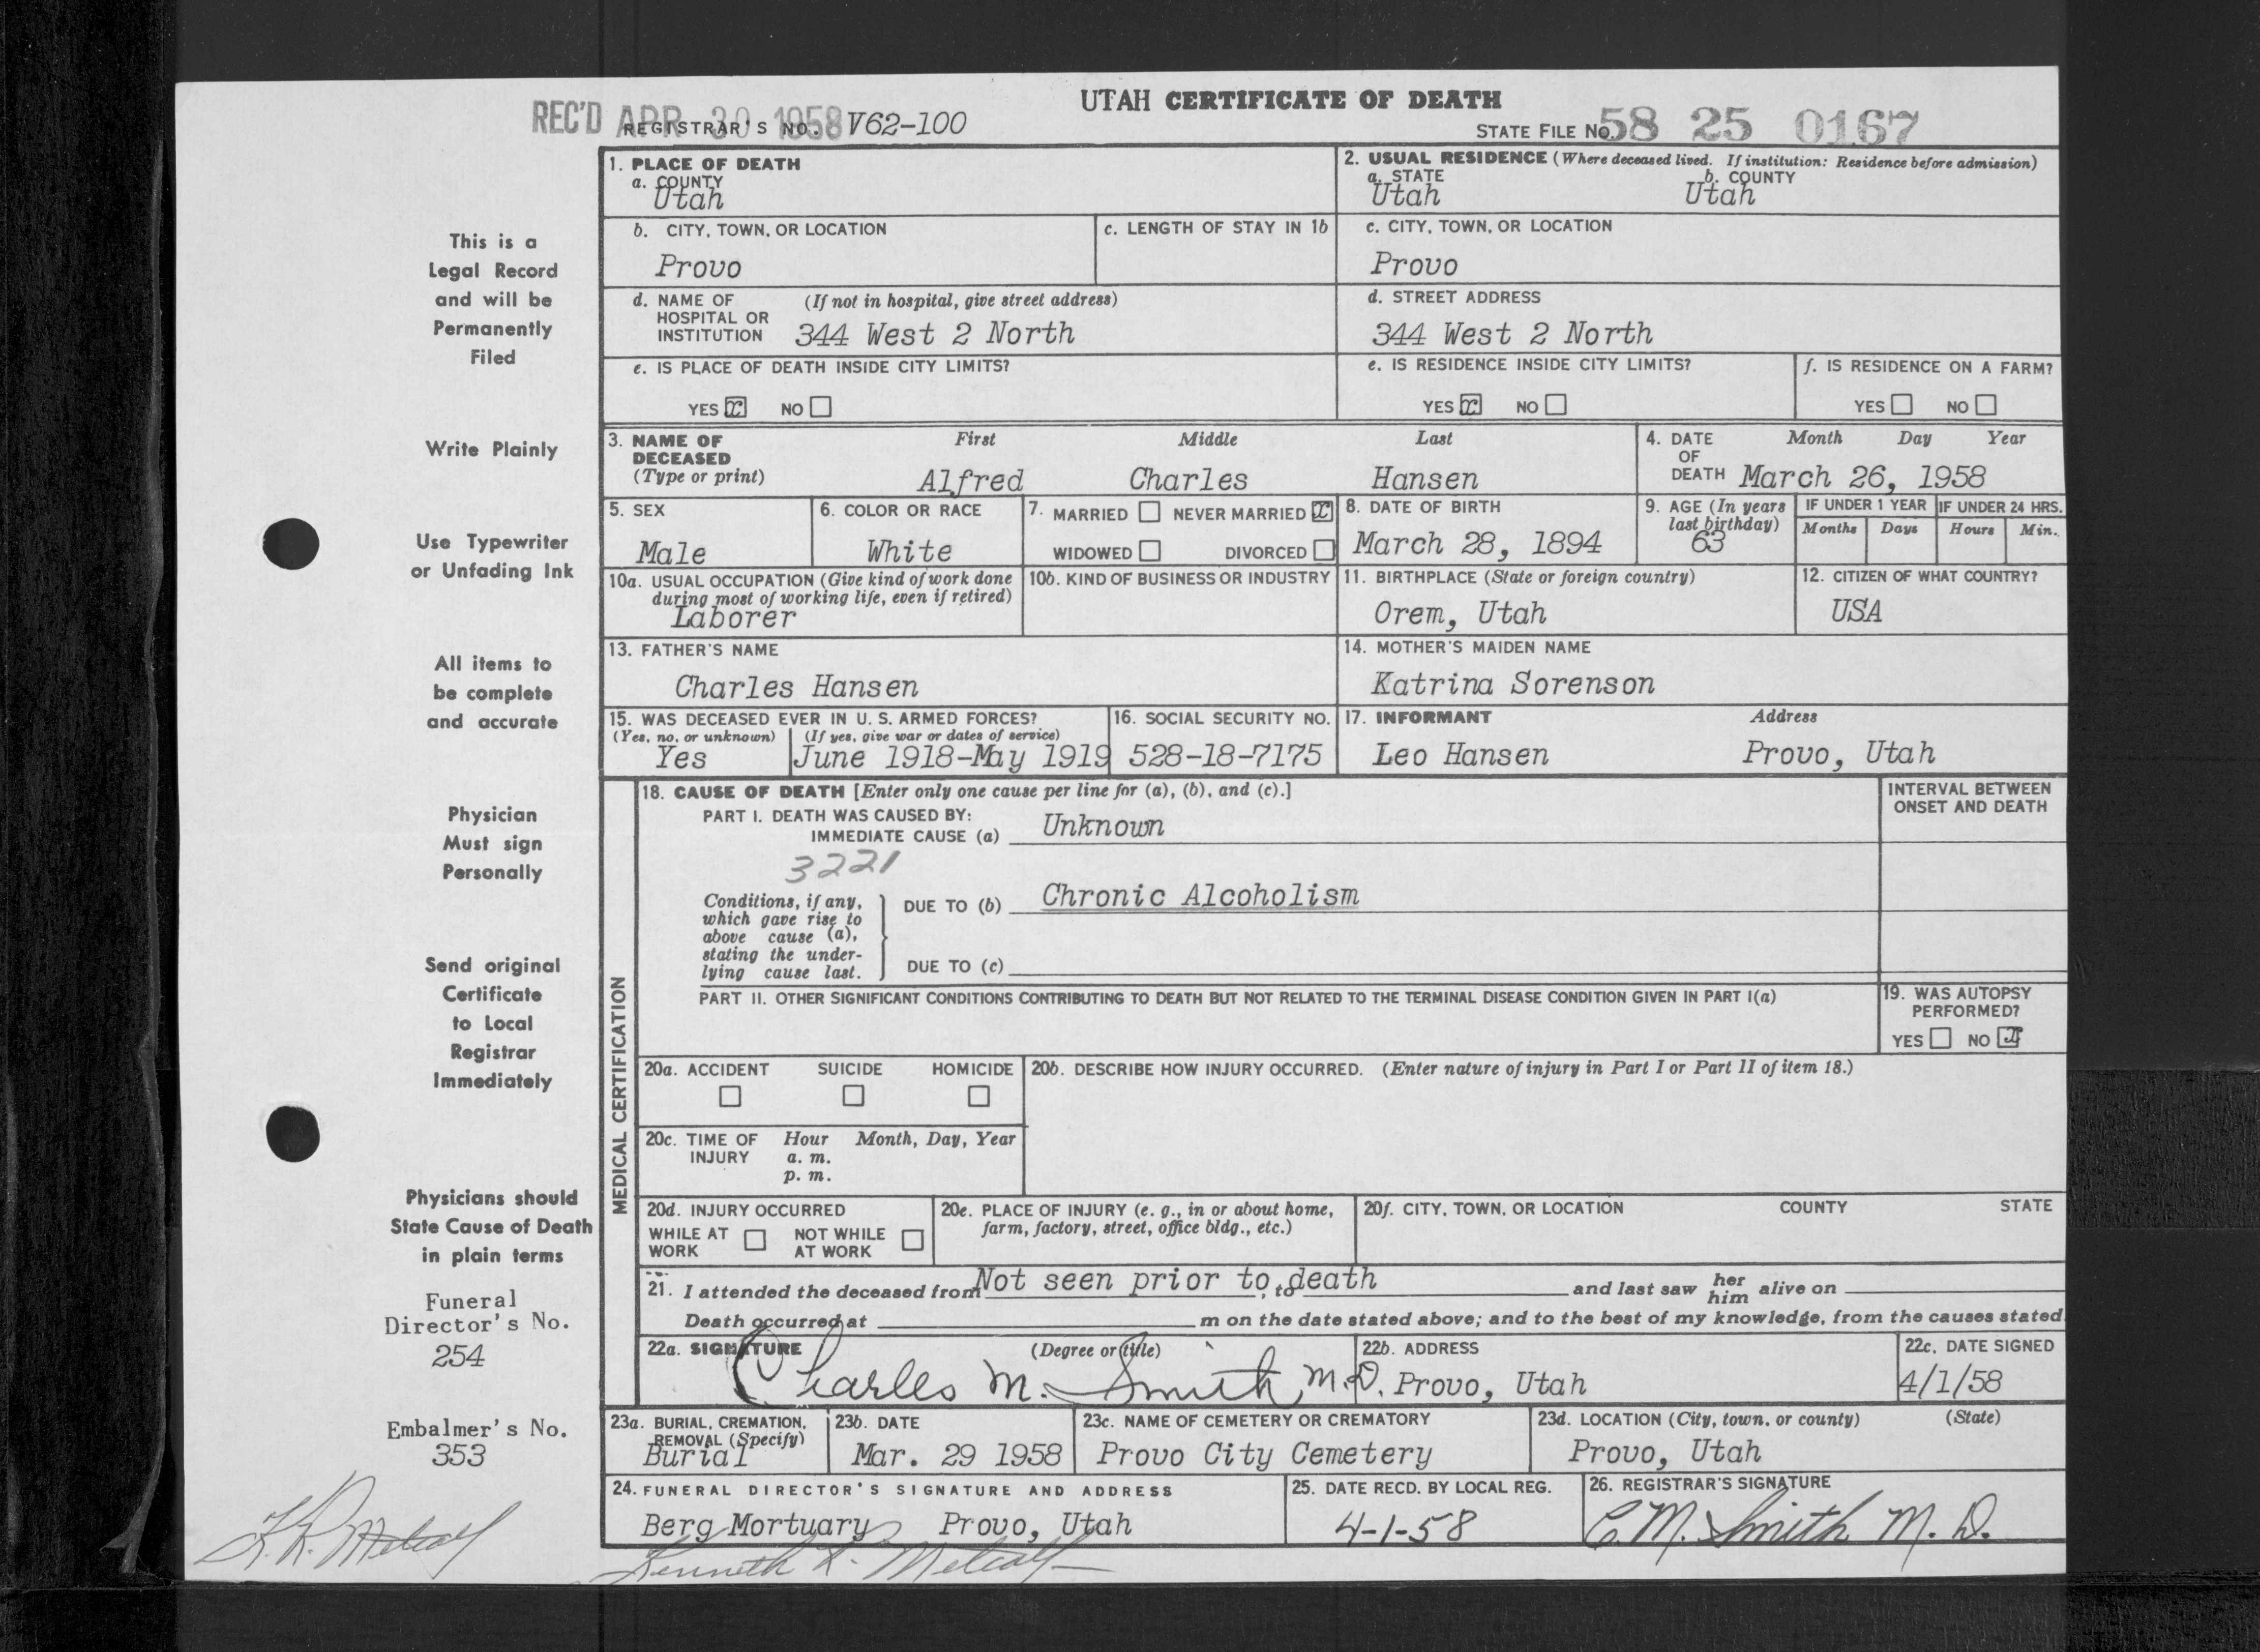 UTAH CERTIFICATE OF DEATH
REC'D APR 30 1958
REGISTRAR'S NO. V62-100
STATE FILE NO. 58 25 0167
This is a
Legal Record
and will be
Permanently
Filed
Write Plainly
Use Typewriter
or Unfading Ink
All items to
be complete
and accurate
Physician
Must sign
Personally
Send original
Certificate
to Local
Registrar
Immediately
Physicians should
State Cause of Death
in plain terms
Funeral
Director's No.
254
Embalmer's No.
353
1. PLACE OF DEATH
a. COUNTY
Utah
2. USUAL RESIDENCE (Where deceased lived. If institution: Residence before admission)
a. STATE b. COUNTY
Utah Utah
b. CITY, TOWN, OR LOCATION
Provo
c. LENGTH OF STAY IN 1b
c. CITY, TOWN, OR LOCATION
Provo
d. NAME OF (If not in hospital, give street address)
HOSPITAL OR
INSTITUTION 344 West 2 North
d. STREET ADDRESS
344 West 2 North
e. IS PLACE OF DEATH INSIDE CITY LIMITS?
YES x NO
e. IS RESIDENCE INSIDE CITY LIMITS?
YES x NO
f. IS RESIDENCE ON A FARM?
YES NO
3. NAME OF First Middle Last
DECEASED
(Type or print) Alfred Charles Hansen
4. DATE Month Day Year
OF
DEATH March 26, 1958
5. SEX
Male
6. COLOR OR RACE
White
7. MARRIED NEVER MARRIED x
WIDOWED DIVORCED
8. DATE OF BIRTH
March 28, 1894
9. AGE (In years
last birthday)
63
IF UNDER 1 YEAR
Months Days
IF UNDER 24 HRS.
Hours Min.
10a. USUAL OCCUPATION (Give kind of work done
during most of working life, even if retired)
Laborer
10b. KIND OF BUSINESS OR INDUSTRY
11. BIRTHPLACE (State or foreign country)
Orem, Utah
12. CITIZEN OF WHAT COUNTRY?
USA
13. FATHER'S NAME
Charles Hansen
14. MOTHER'S MAIDEN NAME
Katrina Sorenson
15. WAS DECEASED EVER IN U. S. ARMED FORCES?
(Yes, no, or unknown) (If yes, give war or dates of service)
Yes June 1918-May 1919
16. SOCIAL SECURITY NO.
528-18-7175
17. INFORMANT Address
Leo Hansen Provo, Utah
MEDICAL CERTIFICATION
18. CAUSE OF DEATH [Enter only one cause per line for (a), (b), and (c).]
INTERVAL BETWEEN
ONSET AND DEATH
PART I. DEATH WAS CAUSED BY:
IMMEDIATE CAUSE (a) Unknown
3221
Conditions, if any,
which gave rise to
above cause (a),
stating the under-
lying cause last.
DUE TO (b) Chronic Alcoholism
DUE TO (c)
PART II. OTHER SIGNIFICANT CONDITIONS CONTRIBUTING TO DEATH BUT NOT RELATED TO THE TERMINAL DISEASE CONDITION GIVEN IN PART I(a)
19. WAS AUTOPSY
PERFORMED?
YES NO x
20a. ACCIDENT SUICIDE HOMICIDE
20b. DESCRIBE HOW INJURY OCCURRED. (Enter nature of injury in Part I or Part II of item 18.)
20c. TIME OF Hour Month, Day, Year
INJURY a. m.
p. m.
20d. INJURY OCCURRED
WHILE AT NOT WHILE
WORK AT WORK
20e. PLACE OF INJURY (e. g., in or about home,
farm, factory, street, office bldg., etc.)
20f. CITY, TOWN, OR LOCATION COUNTY STATE
21. I attended the deceased from Not seen prior to, to death and last saw her him alive on
Death occurred at m on the date stated above; and to the best of my knowledge, from the causes stated
22a. SIGNATURE (Degree or title)
Charles M. Smith M.D.
22b. ADDRESS
Provo, Utah
22c. DATE SIGNED
4/1/58
23a. BURIAL, CREMATION,
REMOVAL (Specify)
Burial
23b. DATE
Mar. 29 1958
23c. NAME OF CEMETERY OR CREMATORY
Provo City Cemetery
23d. LOCATION (City, town, or county) (State)
Provo, Utah
24. FUNERAL DIRECTOR'S SIGNATURE AND ADDRESS
Berg Mortuary Provo, Utah
25. DATE RECD. BY LOCAL REG.
4-1-58
26. REGISTRAR'S SIGNATURE
C. M. Smith M. D.
K. R. Metcalf
Kenneth R. Metcalf